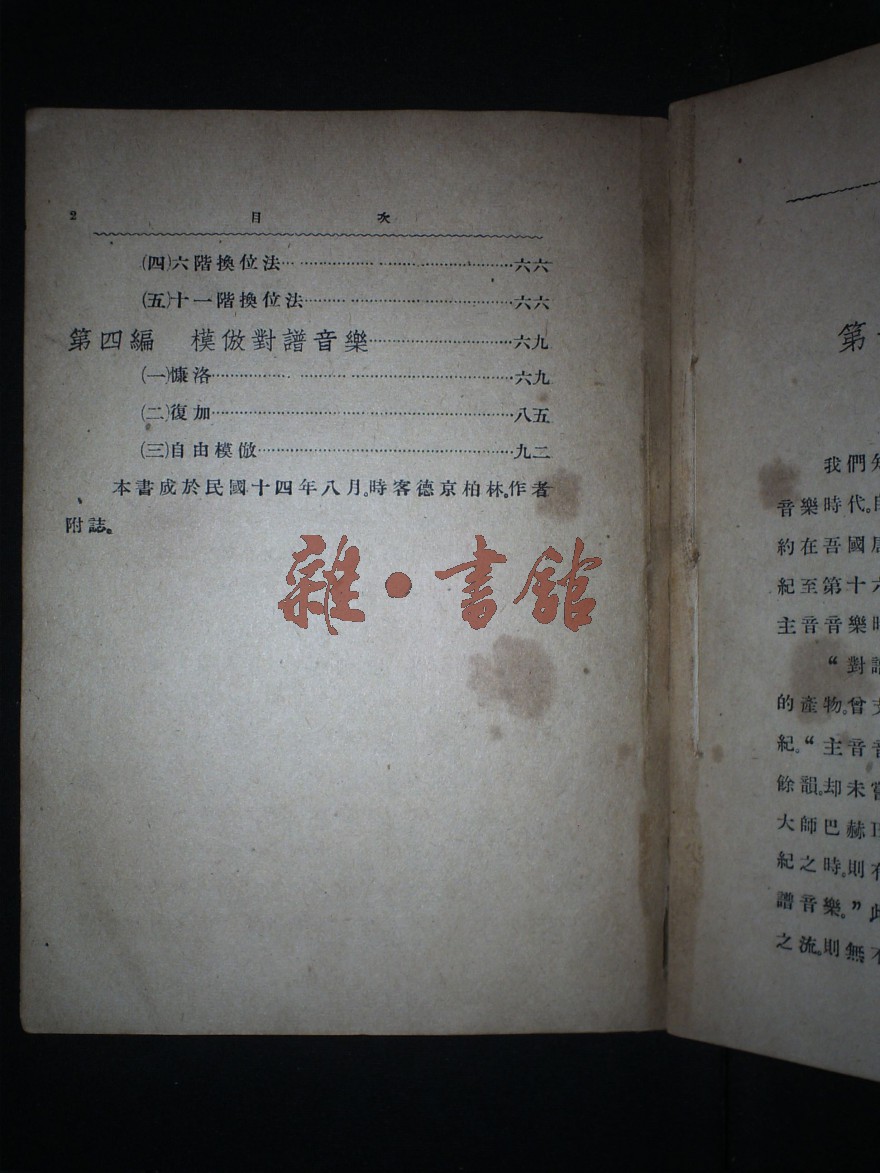 2 目 次
(四)六階換位法……六六
(五)十一階換位法……六六
第四編 模倣對譜音樂……六九
(一)慷洛……六九
(二)復加……八五
(三)自由模倣……九二
本書成於民國十四年八月。時客德京柏林。作者
附誌。
雜·書館
第
我們
音樂時代。
約在吾國
紀至第十六
主音音樂時
“對譜
的產物。曾
紀。“主音音
餘韻。却未嘗
大師巴赫
紀之時。則
譜音樂。”此
之流。則無不